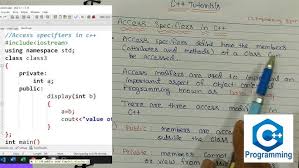 //Access specifiers in C++
#include<iostream>
using namespace std;
class class3
{
private:
int a;
public:
display(int b)
{
a=b;
cout<<"value o
}
int main()
C++ Tutorials
Access Specifiers in C++
Access specifiers define how the members
(attributes and methods) of a class can
be accessed.
Access modifiers are used to implement an
important aspect of object oriented
Programming known as
There are three access modifiers in
Private members are
outside the class
Members cannot
Programming
C++